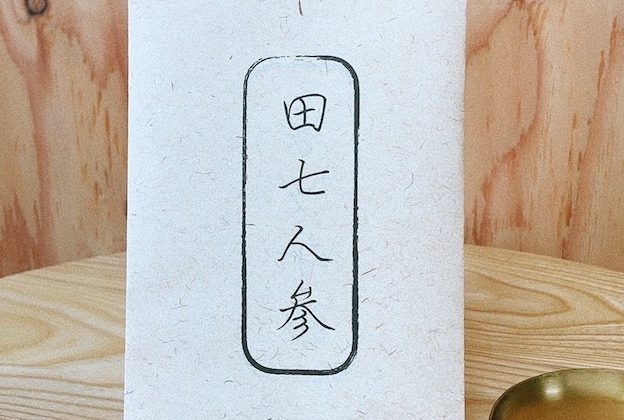 田七人参